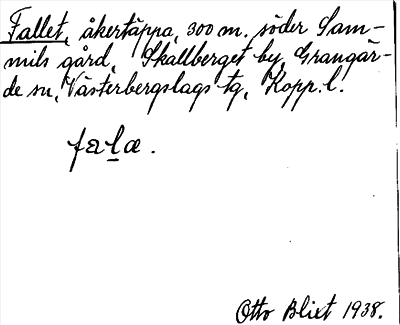 Fallet, åkertäppa, 300 m. söder Sam-
mils gård, Skallberget by, Grangär-
de sn, Västerbergslags tg, Kopp. l.
fala.
Otto Blixt 1938.